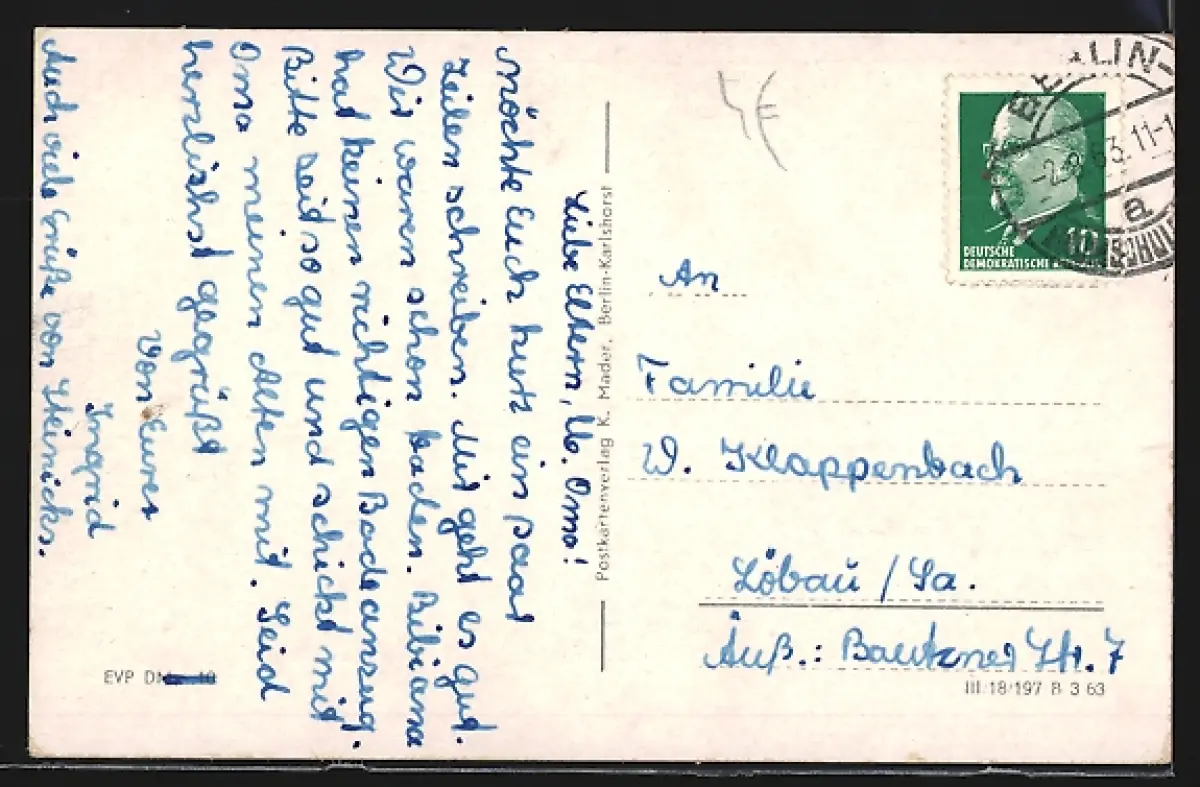 Liebe Eltern, lb. Oma!
Möchte Euch kurz ein paar
Zeilen schreiben. Mir geht es gut.
Wir waren schon baden. Bibiana
hat keinen richtigen Badeanzug.
Bitte seit so gut und schickt mit
Oma meinen alten mit. Seid
herzlichst gegrüßt
von Eurer
Ingrid
Auch viele Grüße von Steinicks.
EVP DM 10
Postkartenverlag K. Mader, Berlin-Karlshorst
BERLIN-
-2.9.63.11-1
a
10
DEUTSCHE
DEMOKRATISCHE
An
Familie
W. Klappenbach
Löbau / Sa.
Äuß.: Bautzner Str. 7
III/18/197 B 3 63